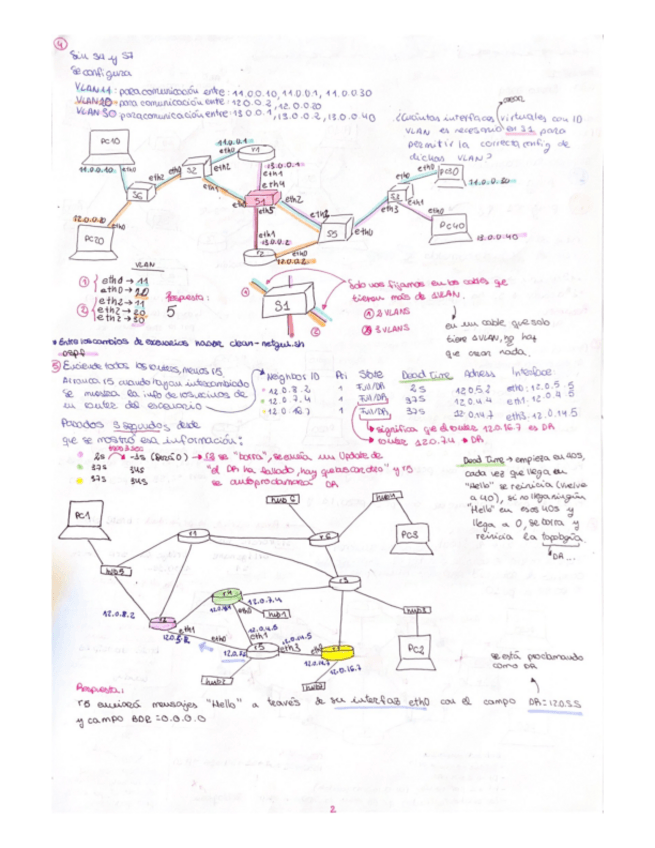 ④
Sin S4 y S7
Se configura
VLAN 11: para comunicación entre: 11.0.0.10, 11.0.0.1, 11.0.0.30
VLAN 20 para comunicación entre: 12.0.0.2, 12.0.0.20
VLAN 30 para comunicación entre 13.0.0.1, 13.0.0.2, 13.0.0.40
¿Cuántas interfaces virtuales con ID
VLAN es necesario en S1 para
permitir la correcta config de
dichas VLAN?
PC10
11.0.0.10
eth0
eth2
S6
eth0
S2
eth2
eth1
11.0.0.1
eth0
r1
13.0.0.1
eth1
eth4
S1
eth0
eth2
eth5
eth1
13.0.0.2
r2
eth0
12.0.0.2
eth2
S5
eth0
eth0
eth3
eth1
PC30
11.0.0.30
eth0
PC40
13.0.0.40
12.0.0.20
eth0
PC20
VLAN
① eth0 → 11
eth0 → 20
② eth2 → 11
eth2 → 20
eth2 → 30
Respuesta:
5
S1
①
②
Solo nos fijamos en los cables que
tienen más de 1 VLAN.
① 2 VLANS
② 3 VLANS
en un cable que solo
tiene 1 VLAN, no hay
que crear nada.
* Entre los cambios de escenarios hacer clean-netgui.sh
OSPF
⑤ Enciende todos los routers, menos r5
Arranca r5 cuando hayan intercambiado
se muestra la info de los vecinos de
un router del escenario
Neighbor ID Pri State Dead Time Adress Interface
12.0.8.2 1 Full/DR 2S 12.0.5.2 eth0:12.0.5.5
12.0.7.4 1 Full/DR 37S 12.0.4.4 eth1:12.0.4.5
12.0.16.7 1 Full/DR 37S 12.0.14.7 eth3:12.0.14.5
significa que el router 12.0.16.7 es DR
router 12.0.7.4 → DR
Pasados 3 segundos desde
que se mostró esa información:
2S → -1S (Pasó 0) → r2 se "borra", se envía un Update de
37S 34S "el DR ha fallado, hay que borrarlo" y r5
37S 34S se autoproclamará DR
Dead Time → empieza en 40S,
cada vez que llega un
"Hello" se reinicia (vuelve
a 40), si no llega ningún
"Hello" en esos 40S y
llega a 0, se borra y
reinicia la topología.
DR...
PC1
hub5
r1
hub6
r6
hub4
PC3
r3
hub3
PC2
12.0.8.2
r2
eth1
12.0.5.2
eth0
r4
12.0.7.4
eth0
hub1
eth1
12.0.14.5
r5
eth3
hub2
12.0.14.7
12.0.16.7
se está proclamando
como DR
Respuesta:
r5 enviará mensajes "Hello" a través de su interfaz eth0 con el campo DR=12.0.5.5
y campo BDR=0.0.0.0
2